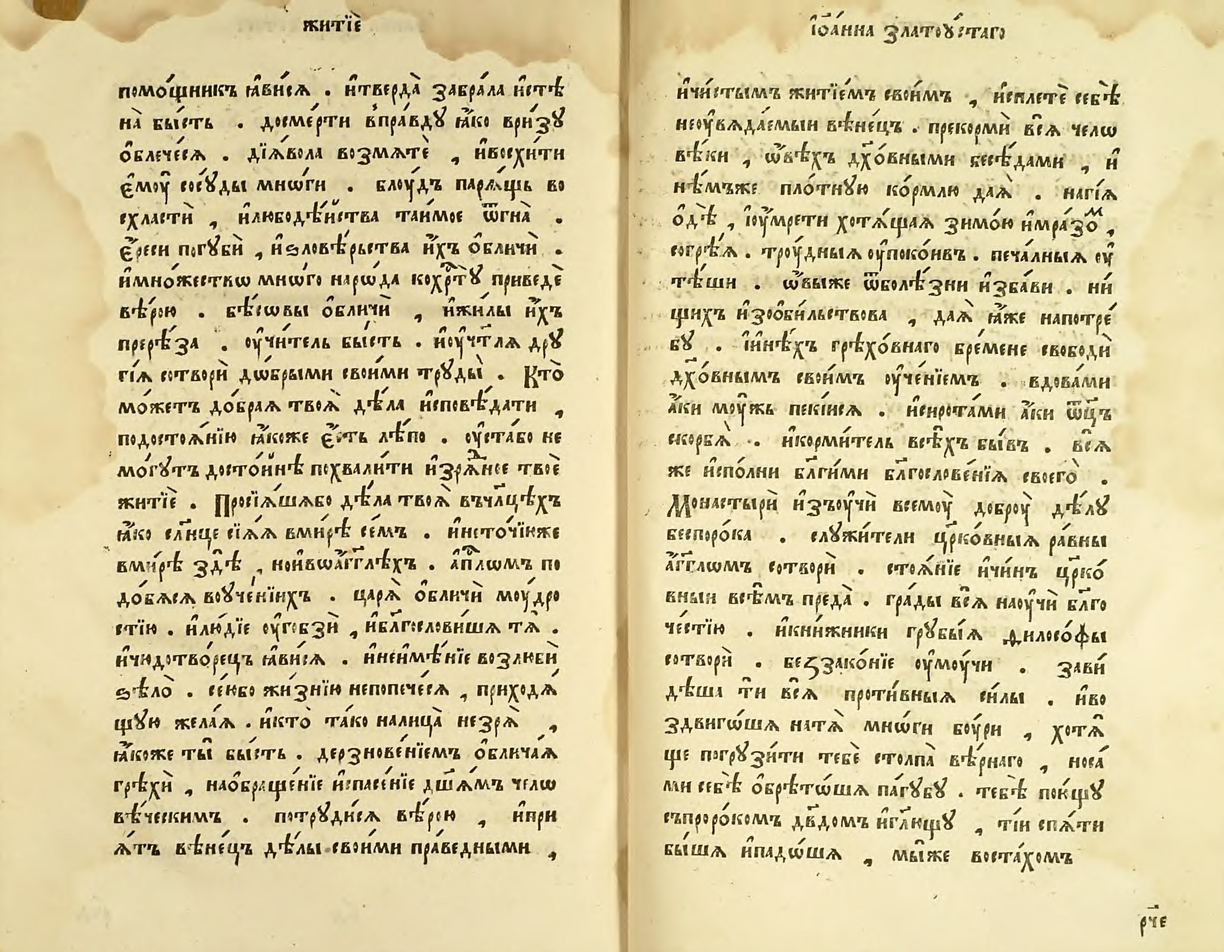 житїѐ
помо́щникъ ꙗ҆ви́сѧ . и҆тверда̀ забра́ла и҆стѣ
на̀ бы́сть . досме́рти в̾пра́вдꙋ ꙗ҆́ко ври́зꙋ
ѡ҆блече́сѧ . дїѧ́вола возмѧтѐ , и҆восхи́ти
є҆моꙋ̀ сосꙋ́ды мнѡ́ги . блоу́дъ парѧ́щь во
схласти̏ , и҆любодѣ́и҆ства таи́мое ѿгна̀ .
є҆́реси погꙋбѝ , и҆ѕловѣ́рьства и҆́хъ ѡ҆бличѝ .
и҆мно́жествѡ мно́го наро́да кохрⷭ҇тꙋ̀ приведѐ
вѣ́рою . бѣ́сѡвы ѡ҆бличѝ , и҆жи́лы и҆́хъ
пререза . оу҆чи́тель бы́сть . и҆оу҆чт҃лѧ дрꙋ
гі́ѧ сотворѝ до́брыми свои́ми трꙋды̀ . Кто̀
мо́жетъ до́браѧ твоѧ̀ дѣ́ла и҆сповѣ́дати ,
подостоѧ́нїю ꙗ҆́коже є҆́сть лѣ́по . оу҆ста́бо не
мо́гꙋтъ досто́йнѣ похвали́ти и҆зрѧ́дное твоѐ
житїѐ . Просїѧ́шѧбо дѣ́ла твоѧ̀ въчл҃цѣхъ
ꙗ҆́ко сл҃нце сїѧ́ѧ вми́рѣ се́мъ . и҆несто́чїюже
вми́рѣ здѣ̀ , нои҆вѡа҆́гг҃лѣхъ . а҆пⷭ҇лѡмъ по
до́бѧсѧ воу҆че́нїихъ . царѧ̀ ѡ҆бличѝ моу́дро
стїю . и҆лю́дїе оу҆гобзѝ , и҆бл҃гослови́шѧ тѧ̀ .
и҆чюдотво́рецъ ꙗ҆ви́сѧ . и҆неимѣ́нїе возлюбѝ
ѕѣло̀ . се́юбо жи́знїю непопече́сѧ , приходѧ́
щꙋю жела́ѧ . и҆кто̀ та́ко налица̀ незрѧ̀ ,
ꙗ҆́коже ты̀ бы́сть . дерзнове́нїемъ ѡ҆блича́ѧ
грѣхѝ , наѡбраще́нїе и҆спасе́нїе дш҃ѧ́мъ челѡ
вѣ́ческимъ . потрꙋди́сѧ вѣ́рою , и҆при
ѧ́тъ вѣне́цъ дѣ́лы свои́ми пра́ведными ,
і҆ѡа́нна златоꙋ́стаго
и҆чи́стымъ житїе́мъ свои́мъ , и҆сплетѐ себѣ̀
неоу҆вѧда́емыи вѣне́цъ . прекормѝ всѧ̀ челѡ
вѣ́ки , ѡ҆вѣ́хъ дх҃о́вными бесѣ́дами , и҆
нѣ́мъже пло́тнꙋю ко́рмлю даѧ̀ . нагі́ѧ
ѡ҆дѣ̀ , і҆оу҆мре́ти хотѧ́щаѧ зимо́ю и҆мра́зоⷨ ,
согрѣ́ѧ . троу́дныѧ оу҆поко́ивъ . печа́лныѧ оу҆
тѣ́ши . ѡ҆выже ѿболѣ́зни и҆зба́ви . ни́
щихъ и҆зоби́льствова , даѧ̀ ꙗ҆́же напотре́
бꙋ . і҆и҆нѣ́хъ грѣхо́внаго бре́мене свободѝ
дх҃о́внымъ свои́мъ оу҆че́нїемъ . вдова́ми
а҆́ки моу́жь пекі́исѧ . и҆сирота́ми а҆́ки ѻ҆ц҃ъ
скорбѧ̀ . и҆корми́тель всѣ́хъ бы́въ . всѧ̀
же и҆спо́лни бл҃ги́ми бл҃гослове́нїѧ своего̀ .
Монастырѝ и҆зъоу҆чѝ всемоу̀ доброу̀ дѣ́лꙋ
беспоро́ка . слꙋжи́тели цр҃ко́вныѧ ра́вны
а҆́гг҃лѡмъ сотворѝ . стоѧ́нїе и҆чи́нъ цр҃ко́
вныи всѣ́мъ преда̀ . гра́ды всѧ̀ наоу҆чѝ бл҃го
че́стїю . и҆кни́жники грꙋбы́ѧ филосо́фы
сотворѝ . беззако́нїе оу҆моу́чи . зави́
дѣша тѝ всѧ̀ проти́вныѧ си́лы . и҆во
здвиго́шѧ натѧ̀ мнѡ́ги боу́ри , хотѧ́
ще погрꙋзи́ти тебѐ столпа̀ вѣ́рнаго , носа́
ми себѣ̀ ѡ҆брѣто́шѧ па́гꙋбꙋ . тебѣ̀ пою́щꙋ
съпроро́комъ дв҃домъ и҆гл҃ющꙋ , ті́и спѧ́ти
бы́шѧ и҆падо́шѧ , мы́же воста́хомъ
рч҃е